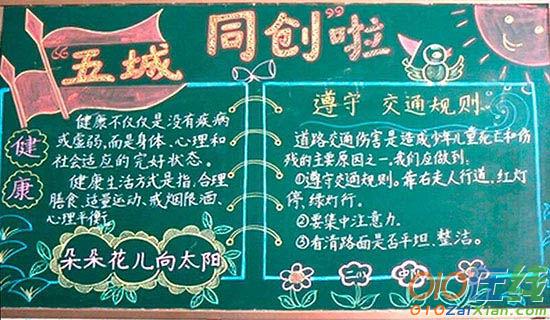 “五城同创”啦
健康
健康不仅仅是没有疾病
或虚弱,而是身体、心理和
社会适应的完好状态。
健康生活方式是指,合理
膳食、适量运动、戒烟限酒、
心理平衡。
朵朵花儿向太阳
遵守 交通规则。
道路交通伤害是造成少年儿童死亡和伤
残的主要原因之一,我们应做到:
①遵守交通规则。靠右走人行道,红灯
停,绿灯行。
②要集中注意力。
③看清路面是否平坦、整洁。
二(1)中队
010在线
010zaixian.com